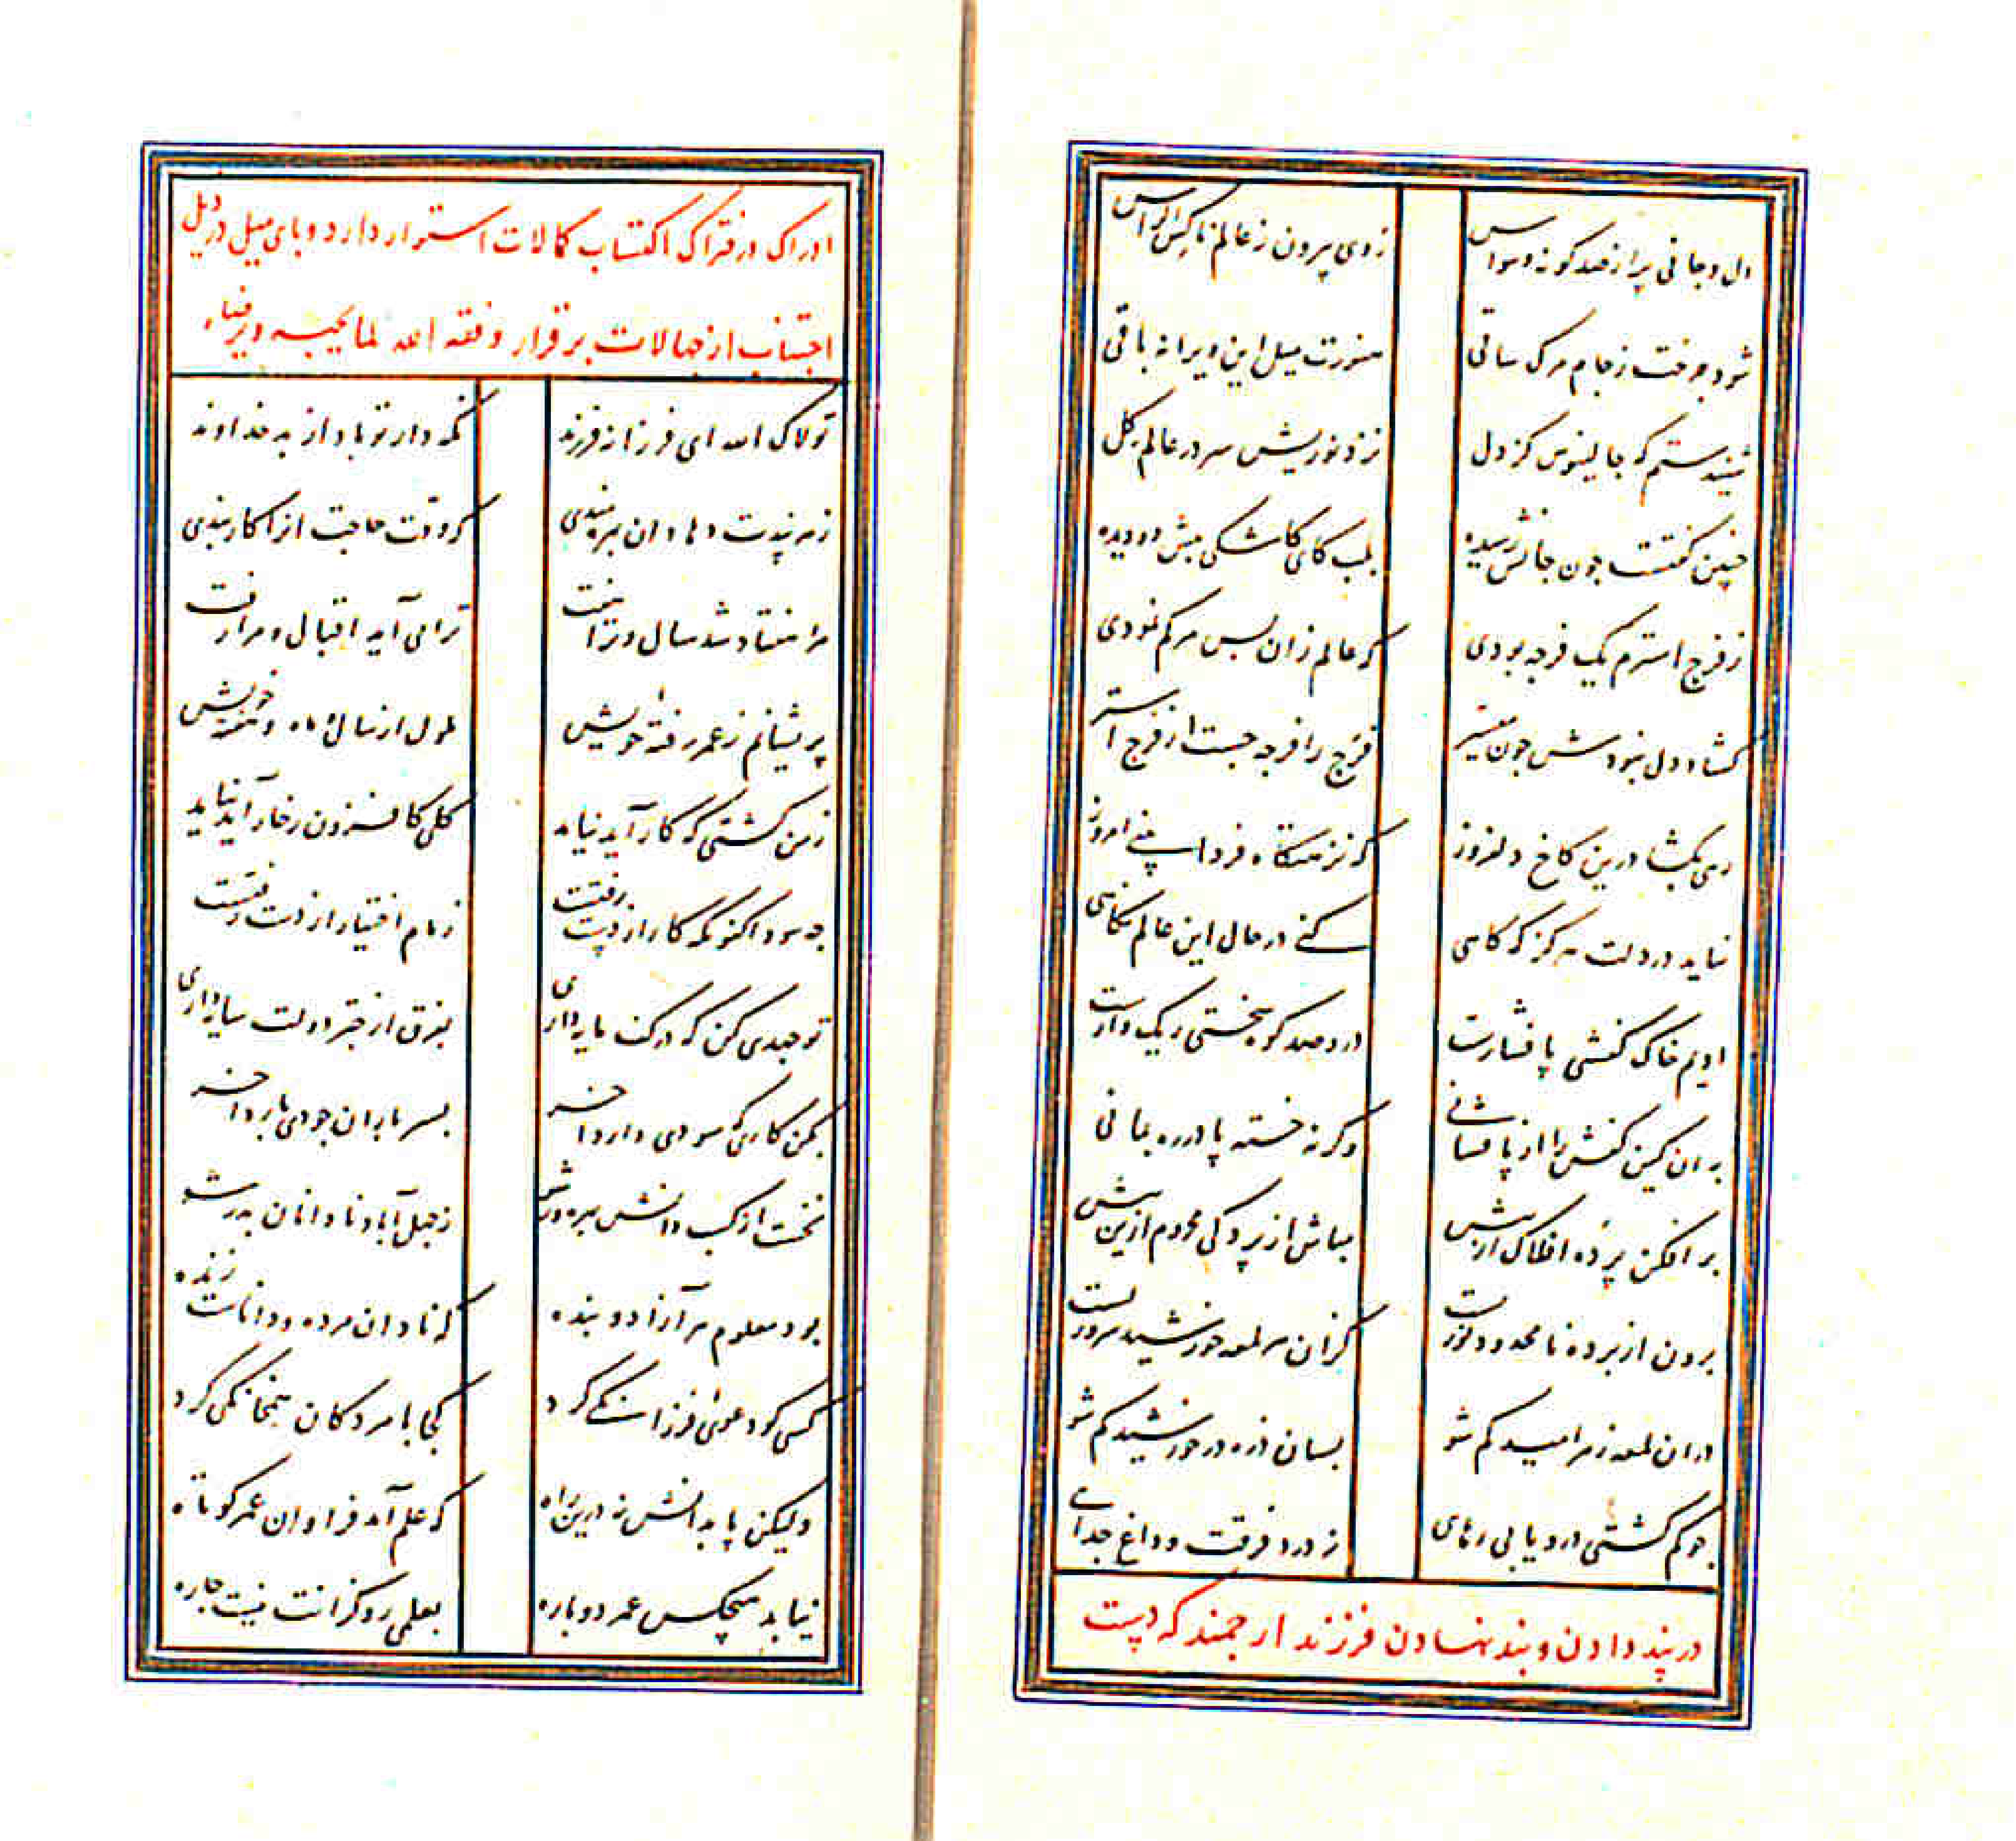 دل و جانی پر از صد گونه وسواس
روی بیرون ز عالم ناکس الراس
شود چو رخت ز جام مرگ ساقی
هنوزت میل این ویرانه باقی
شنیدستم که جالینوس کز دل
نزد نوریش سر در عالم گل
چنین گفتست چون جانش رسیده
بلب کای کاشکی پیش دو دیده
ز فرج استرم یک فرجه بودی
که عالم زان پس مرگم نمودی
گشاد دل نبودش چون میسر
فرج را فرجه جست از فرج استر
رهی بگشا درین کاخ دلفروز
که نزهتگاه فردا بینی امروز
نیاید در دلت هرگز که گاهی
کنی در حال این عالم نگاهی
ادیم خاک کفشی پا فشارست
در و صد گونه سختی ریگ وارست
بران کین کفش را از پا فشانی
وگرنه خسته پا در ره بمانی
برافکن پرده افلاک از پیش
مباش از پردگی محروم ازین بیش
برون از پرده نامحدود نوریست
کزان هر لمعه خورشید سروریست
در ان لمعه ز هر امید گم شو
بسان ذره در خورشید گم شو
چو گم گشتی درو یابی رهایی
ز درد فرقت و داغ جدایی
در پند دادن و بند نهادن فرزند ارجمند که دست
ادراک در فتراک اکتساب کمالات استوار دارد و پای میل در ذیل
اجتناب از جهالات برقرار وفقه الله لما یحبه و یرضاه
تولاک الله ای فرزانه فرزند
نگه دار تو باد از بد خداوند
ز هر پندت دهاد ان بهره‌مندی
که وقت حاجت انرا کار بندی
مرا هفتاد شد سال و ترا هفت
ترا می آید اقبال و مرا رفت
پریشانم ز عمر رفته خویش
ملول از سال و ماه و هفته خویش
ز من کشتی که کار آید نیاید
گلی کافزون ز خار آید نیاید
چه سود اکنون که کار از دست رفتست
زمام اختیار از دست رفتست
تو جهدی کن که در کف مایه داری
بفرق از چتر دولت سایه داری
بکن کاری که سودی دارد اخر
بسر باران جودی بارد اخر
نخست از کسب دانش بهره ور شو
ز جهل آباد نادانان بدر شو
بود معلوم هر آزاد و بنده
که نادان مرده و داناست زنده
کسی کو دعوی فرزانگی کرد
کجا با مردگان همخانگی کرد
ولیکن پا به دانش نه درین راه
که علم آمد فراوان عمر کوتاه
نیابد هیچکس عمر دوباره
بعلمی رو کزانت نیست چاره